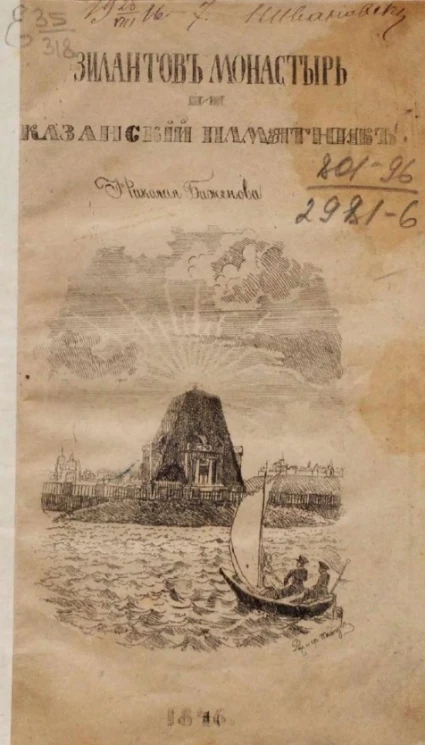 35
318
19 26/VIII 16 - 7.
ЗИЛАНТОВЪ МОНАСТЫРЬ
И
КАЗАНСКІЙ ПАМЯТНИКЪ.
Николая Баженова
801-96
2981-6
1846.